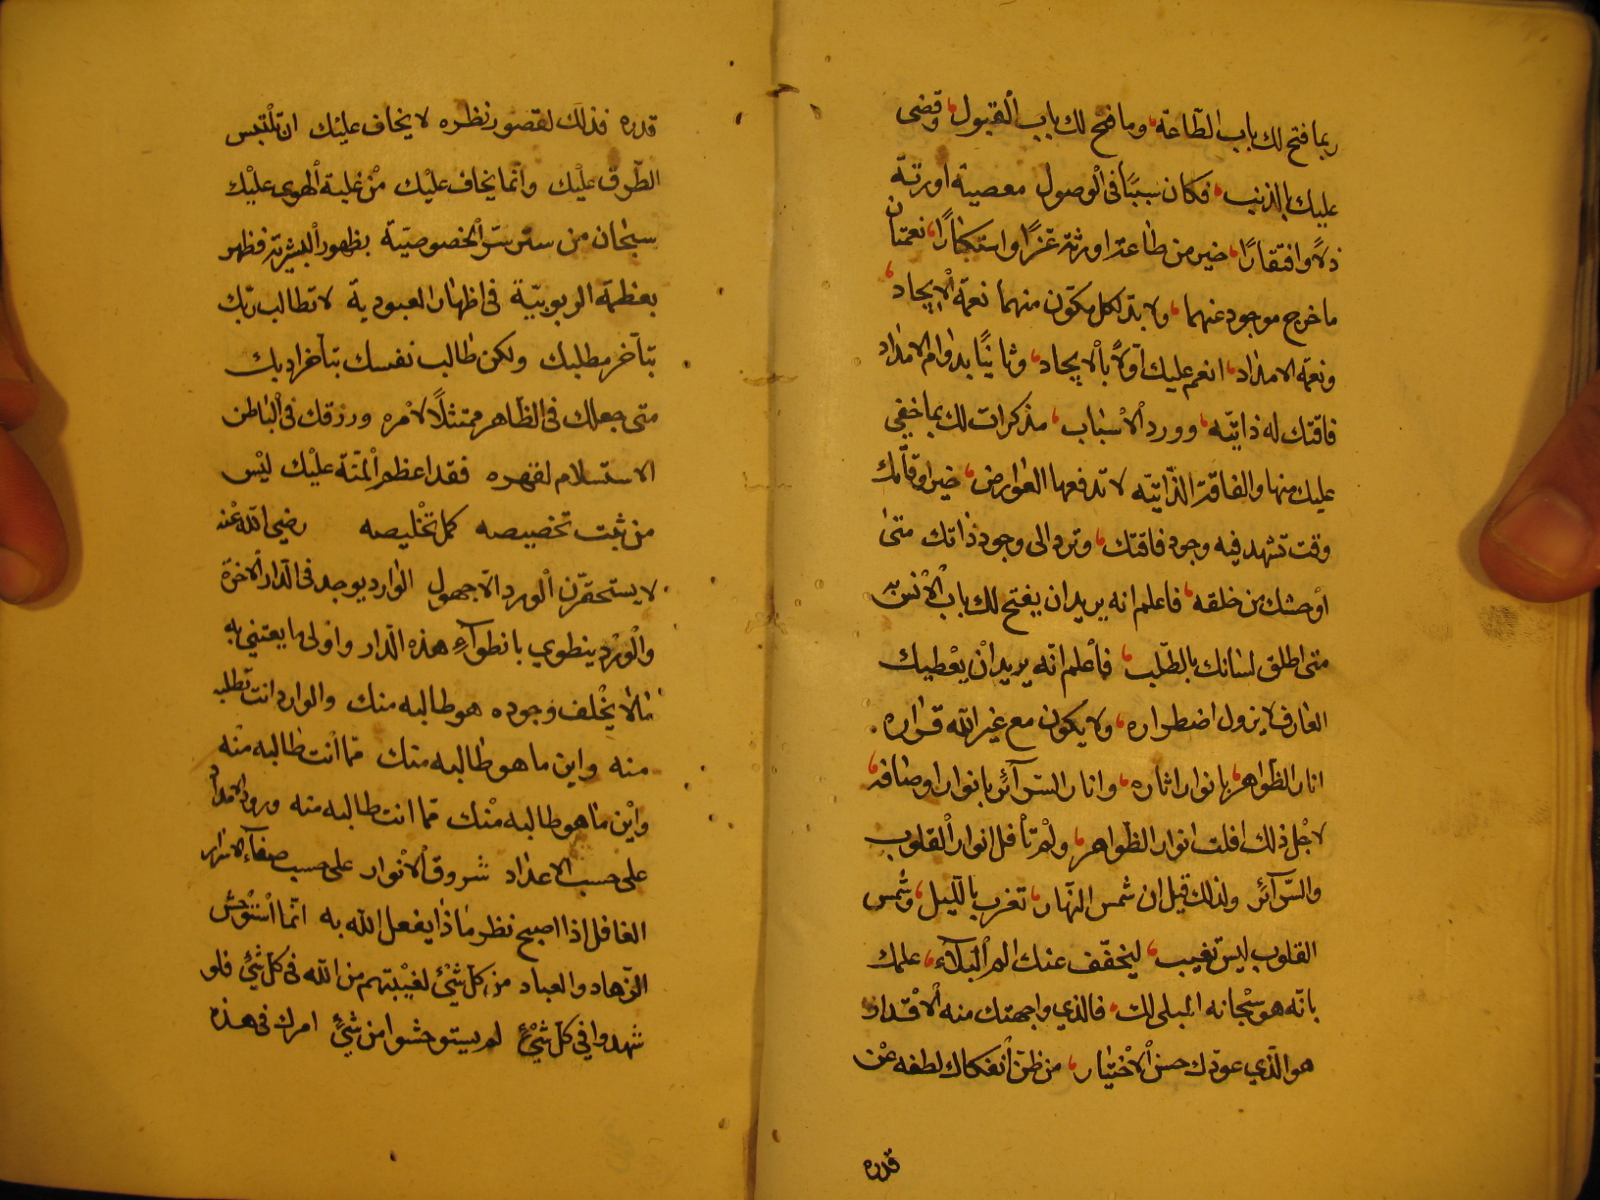 ربما فتح لك باب الطاعة وما فتح لك باب القبول وقضى
عليك بالذنب فكان سببًا فى الوصول معصية اورثة
ذلًا وافتقارًا خير من طاعة اورثة عزًا واستكبارًا نعمتان
ما خرج موجود عنهما ولا بد لكل مكون منهما نعمة الايجاد
ونعمة الامداد انعم عليك اولًا بالايجاد وثانيًا بدوام الامداد
فاقتك له ذاتية وورد الاسباب مذكرات لك بما خفي
عليك منها والفاقة الذاتية لا تدفعها العوارض خير اوقاتك
وقت تشهد فيه وجود فاقتك وترد الى وجود ذاتك متى
اوحشك من خلقه فاعلم انه يريد ان يفتح لك باب الانس به
متى اطلق لسانك بالطلب فاعلم انه يريد ان يعطيك
العارف لا يزول اضطراره ولا يكون مع غير الله قراره.
انار الظواهر بانوار اثاره وانار السرآئر بانوار اوصافه
لاجل ذلك افلت انوار الظواهر ولم تأفل انوار القلوب
والسرآئر ولذلك قيل ان شمس النهار تغرب بالليل وشمس
القلوب ليس تغيب ليخفف عنك الم البلآء علمك
بانه هو سبحانه المبلى لك فالذي واجهتك منه الاقدار
هو الذي عودك حسن الاختيار من ظن انفكاك لطفه عن
قدره
قدره فذلك لقصور نظره لا يخاف عليك ان تلتبس
الطرق عليك وانما يخاف عليك من غلبة الهوى عليك
سبحان من ستر ستر الخصوصية بظهور البشرية فظهر
بعظمة الربوبية فى اظهار العبودية لا تطالب ربك
بتآخر مطلبك ولكن طالب نفسك بتآخر ادبك
متى جعلك فى الظاهر ممتثلًا لامره ورزقك فى الباطن
الاستسلام لقهره فقد اعظم المنة عليك ليس
من ثبت تخصيصه كمل تخليصه رضي الله عنه
لا يستحقرن الورد الا جهول الوارد يوجد فى الدار الاخرة
والورد ينطوي بانطوآء هذه الدار واولى ما يعتني به
مالا يخلف وجوده هو طالبه منك والوارد انت تطلبه
منه واين ما هو طالبه منك مما انت طالبه منه
واين ما هو طالبه منك مما انت طالبه منه ورود الامداد
على حسب الاعداد شروق الانوار على حسب صفآء الاسرار
الغافل اذا اصبح نظر ماذا يفعل الله به انما استوحش
الزهاد والعباد من كل شيئ لغيبتهم من الله فى كل شيئ فلو
شهدوا في كل شيئ لم يستوحشوا من شيئ امرك فى هذه